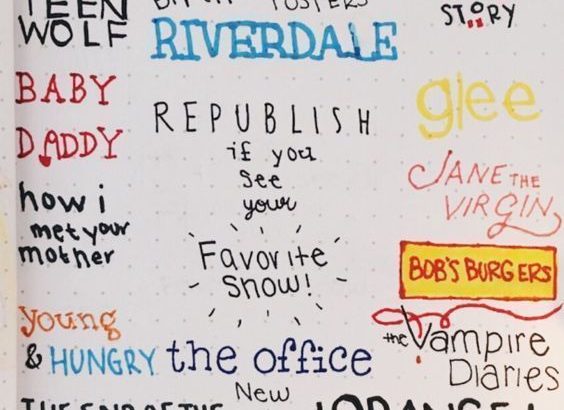 TEEN
WOLF
RIVERDALE
STORY
BABY
DADDY
REPUBLISH
if you
see
your
Favorite
Show!
glee
JANE THE
VIRGIN
how i
met your
mother
BOB'S BURGERS
young
& HUNGRY
the office
the Vampire
Diaries
New
THE END OF THE